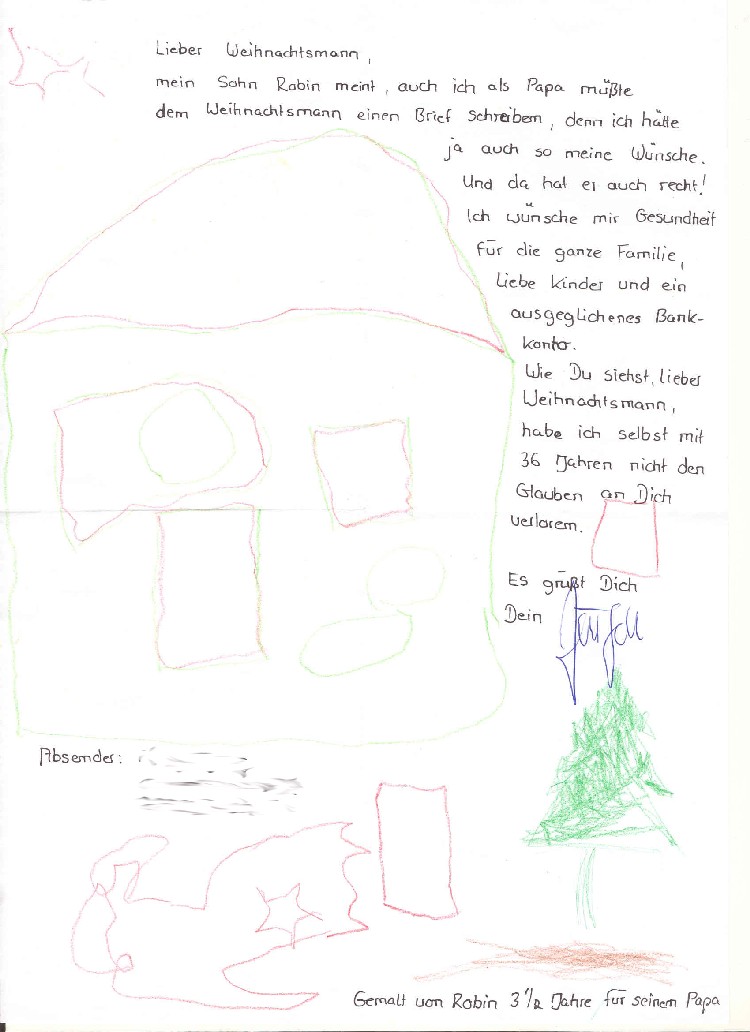 Lieber Weihnachtsmann,
mein Sohn Robin meint, auch ich als Papa müßte
dem Weihnachtsmann einen Brief schreiben, denn ich hätte
ja auch so meine Wünsche.
Und da hat er auch recht!
Ich wünsche mir Gesundheit
für die ganze Familie,
Liebe Kinder und ein
ausgeglichenes Bank-
konto.
Wie Du siehst, lieber
Weihnachtsmann,
habe ich selbst mit
36 Jahren nicht den
Glauben an Dich
verloren.
Es grüßt Dich
Dein
Absender:
Gemalt von Robin 3 1/2 Jahre für seinen Papa